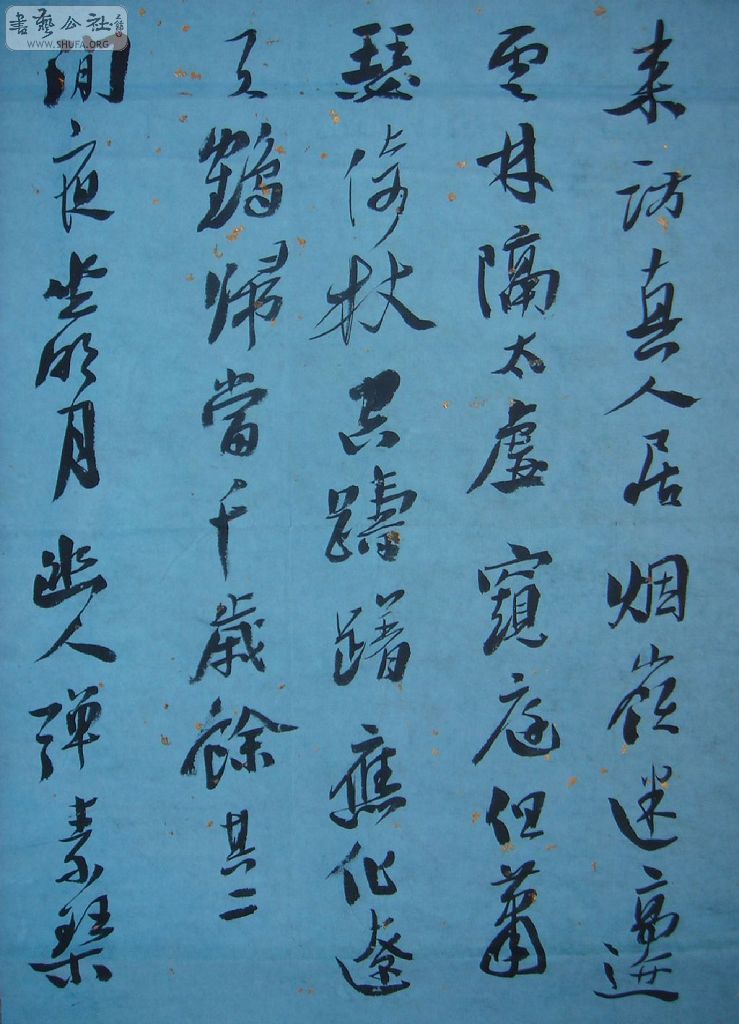 来訪真人居烟嶺迷高迹
雲林隔太虛窺庭但蕭
瑟倚杖空躊躇應化遼
天鶴歸當千歲餘其二
閒夜坐明月幽人彈素琴
書藝公社
WWW.SHUFA.ORG